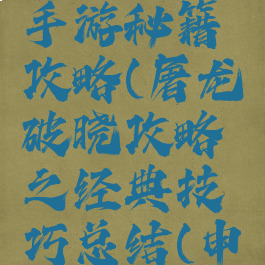 手游秘籍
攻略(屠龙
破晓攻略
之经典技
巧总结(申